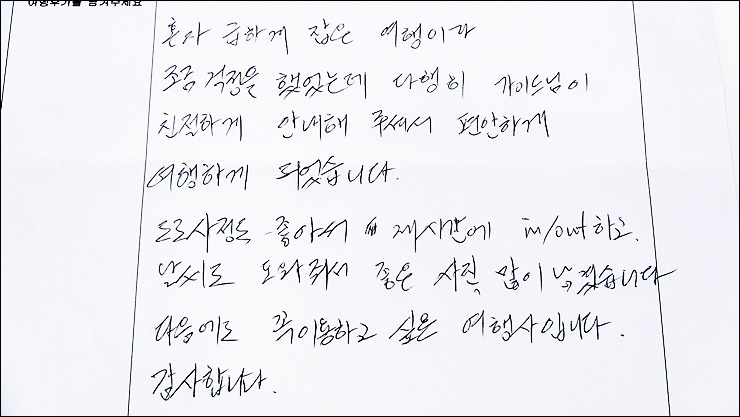 여행후기를 남겨주세요
혼자 급하게 잡은 여행이라
조금 걱정을 했었는데 다행히 가이드님이
친절하게 안내해 주셔서 편안하게
여행하게 되었습니다.
도로사정도 좋아서 제시간에 in/out 하고.
날씨도 도와줘서 좋은 사진 많이 남겼습니다
다음에도 꼭 이용하고 싶은 여행사입니다.
감사합니다.